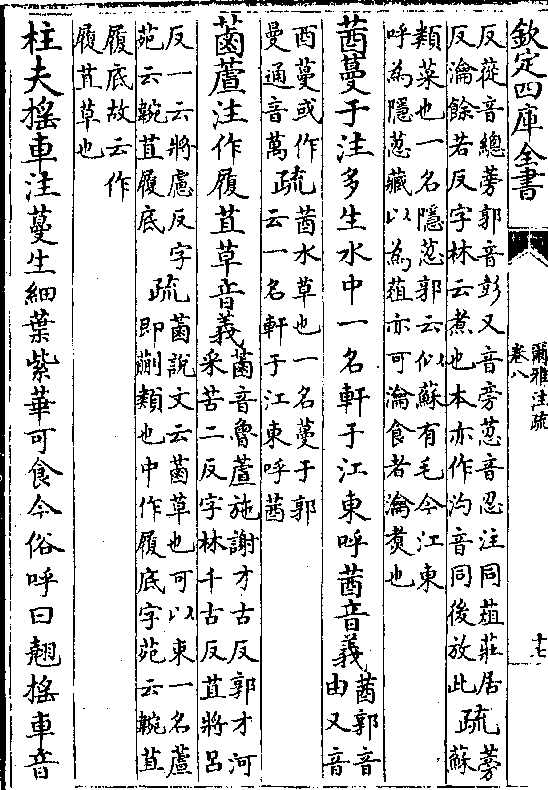 欽定四庫全書
爾雅注疏
卷八
十七
反蓯音總蒡郭音彭又音旁荵音忍注同葅莊居
反瀹餘若反字林云煮也本亦作汋音同後放此疏蒡蘇
類菜也一名隱荵郭云似蘇有毛今江東
呼為隱荵藏以為葅亦可瀹食者瀹煑也
茜蔓于注多生水中一名軒于江東呼茜音義茜郭音由又音
酉蔓或作曼通音萬疏茜水草也一名蔓于郭云一名軒于江東呼茜
菡蘆注作履苴草音義菡音魯蘆施謝才古反郭才河采苦二反字林千古反苴將呂
反一云將慮反字苑云鞔苴履底疏菡說文云菡草也可以束一名蘆即蒯類也中作履底字苑云鞔苴
履底故云作履苴草也
柱夫搖車注蔓生細葉紫華可食今俗呼曰翹搖車音